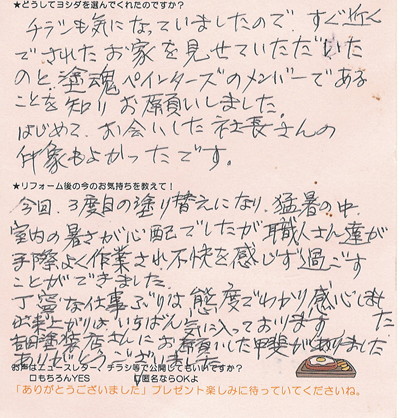 ★どうしてヨシダを選んでくれたのですか？
チラシも気になっていましたので すぐ近く
でされたお家を見せていただいた
のと、塗魂ペインターズのメンバーである
ことを知り お願いしました。
はじめて、お会いした社長さんの
印象もよかったです。
★リフォーム後の今のお気持ちを教えて！
今回、3度目の塗り替えになり、猛暑の中、
室内の暑さが心配でしたが 職人さん達が
手際よく作業され不快を感じず過ごす
ことができました。
丁寧な仕事ぶりは 態度でわかり感心しまし
た
出来上がりは いちばん 気に入っております
吉田塗装店さんに お願いした甲斐がありました
ありがとうございました
お声はニュースレター、チラシ等で公開してもいいですか？
□もちろんYES ☑匿名ならOKよ
「ありがとうございました」プレゼント楽しみに待っていてくださいね。